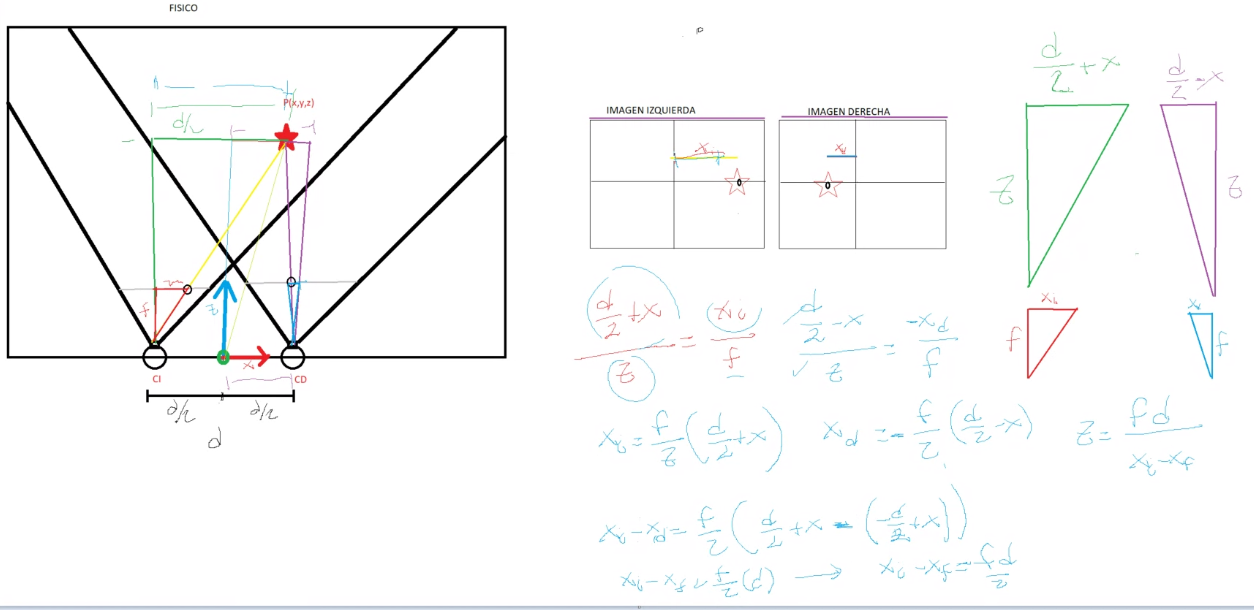 FISICO
P
P(x,y,z)
d/2
f
z
x
CI
CD
d/2 d/2
d
IMAGEN IZQUIERDA
IMAGEN DERECHA
d/2 + x
d/2 - x
z
z
f
f
(d/2 + x)/z = x_i/f
(d/2 - x)/z = -x_d/f
x_i = f/z (d/2 + x)
x_d = - f/z (d/2 - x)
z = fd/(x_i - x_d)
x_i - x_d = f/z (d/2 + x - (-d/2 + x))
x_i - x_d = f/z (d) → x_i - x_d = fd/z